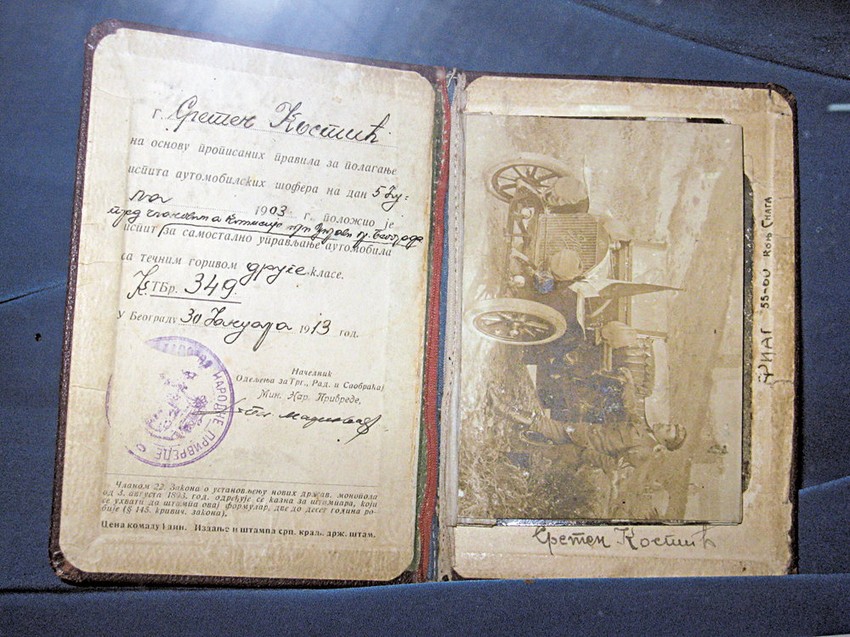 г. Сретен Костић
на основу прописаних правила за полагање
испита аутомобилских шофера на дан 5 Ју-
ла 1903 г. положио је
пред члановима комисије при Управи гр. Београда
испит за самостално управљање аутомобила
са течним горивом друге класе.
К.Т.Бр. 349.
У Београду 30 Јануара 1913 год.
Начелник
Одељења за Трг., Рад. и Саобраћај
Мин. Нар. Привреде,
НАРОДНЕ ПРИВРЕДЕ
Чланом 22. Закона о установљењу нових држав. монопола
од 3. августа 1893. год. одређује се казна за штампара, који
се ухвати да штампа овај формулар, две до десет година ро-
бије (§ 145. кривич. закона).
Цена комаду 1 дин. Издање и штампа срп. краљ. држ. штам.
Сретен Костић
ФИАТ 55-60 КОЊ СНАГА